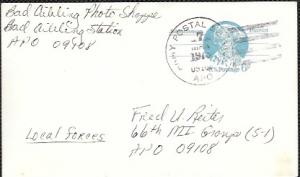 Bad Aibling Photo Shoppe
Bad Aibling Station
APO 09108
ARMY POSTAL
APO
Postage
Local Forces
Fred U Reiter
66th MI Group (S-1)
APO 09108